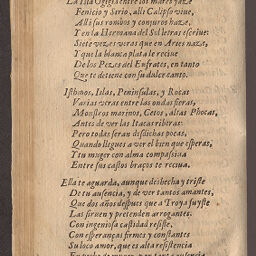 La Isla Ogigia entre los mares yaze
Fenicio y Sirio, alli Calipso viue,
Alli sus rombos y conjuros haze,
Y en la Hermana del Sol letras escriue:
Siete vezes veras que en Aries nazca,
Y que la blanca plata le reciue
De los Pezes del Eufrates, en tanto
Que te detiene con su dulce canto.
Isthmos, Islas, Peninsulas, y Rocas
Varias veras entre las ondas fieras,
Monstros marinos, Cetos, altas Phocas,
Antes de ver las Itacas riberas:
Pero todas seran desdichas pocas,
Quando llegues a ver el bien que esperas,
Y tu muger con alma compassiua
Entre sus castos braços te reciua.
Ella te aguarda, aunque deshecha y triste
De tu ausencia, y de ver tantos amantes,
Que dos años despues que a Troya fuyste
Las siruen y pretenden arrogantes.
Con ingeniosa castidad resiste,
Con esperanças firmes y constantes
Su loco amor, que es alta resistencia